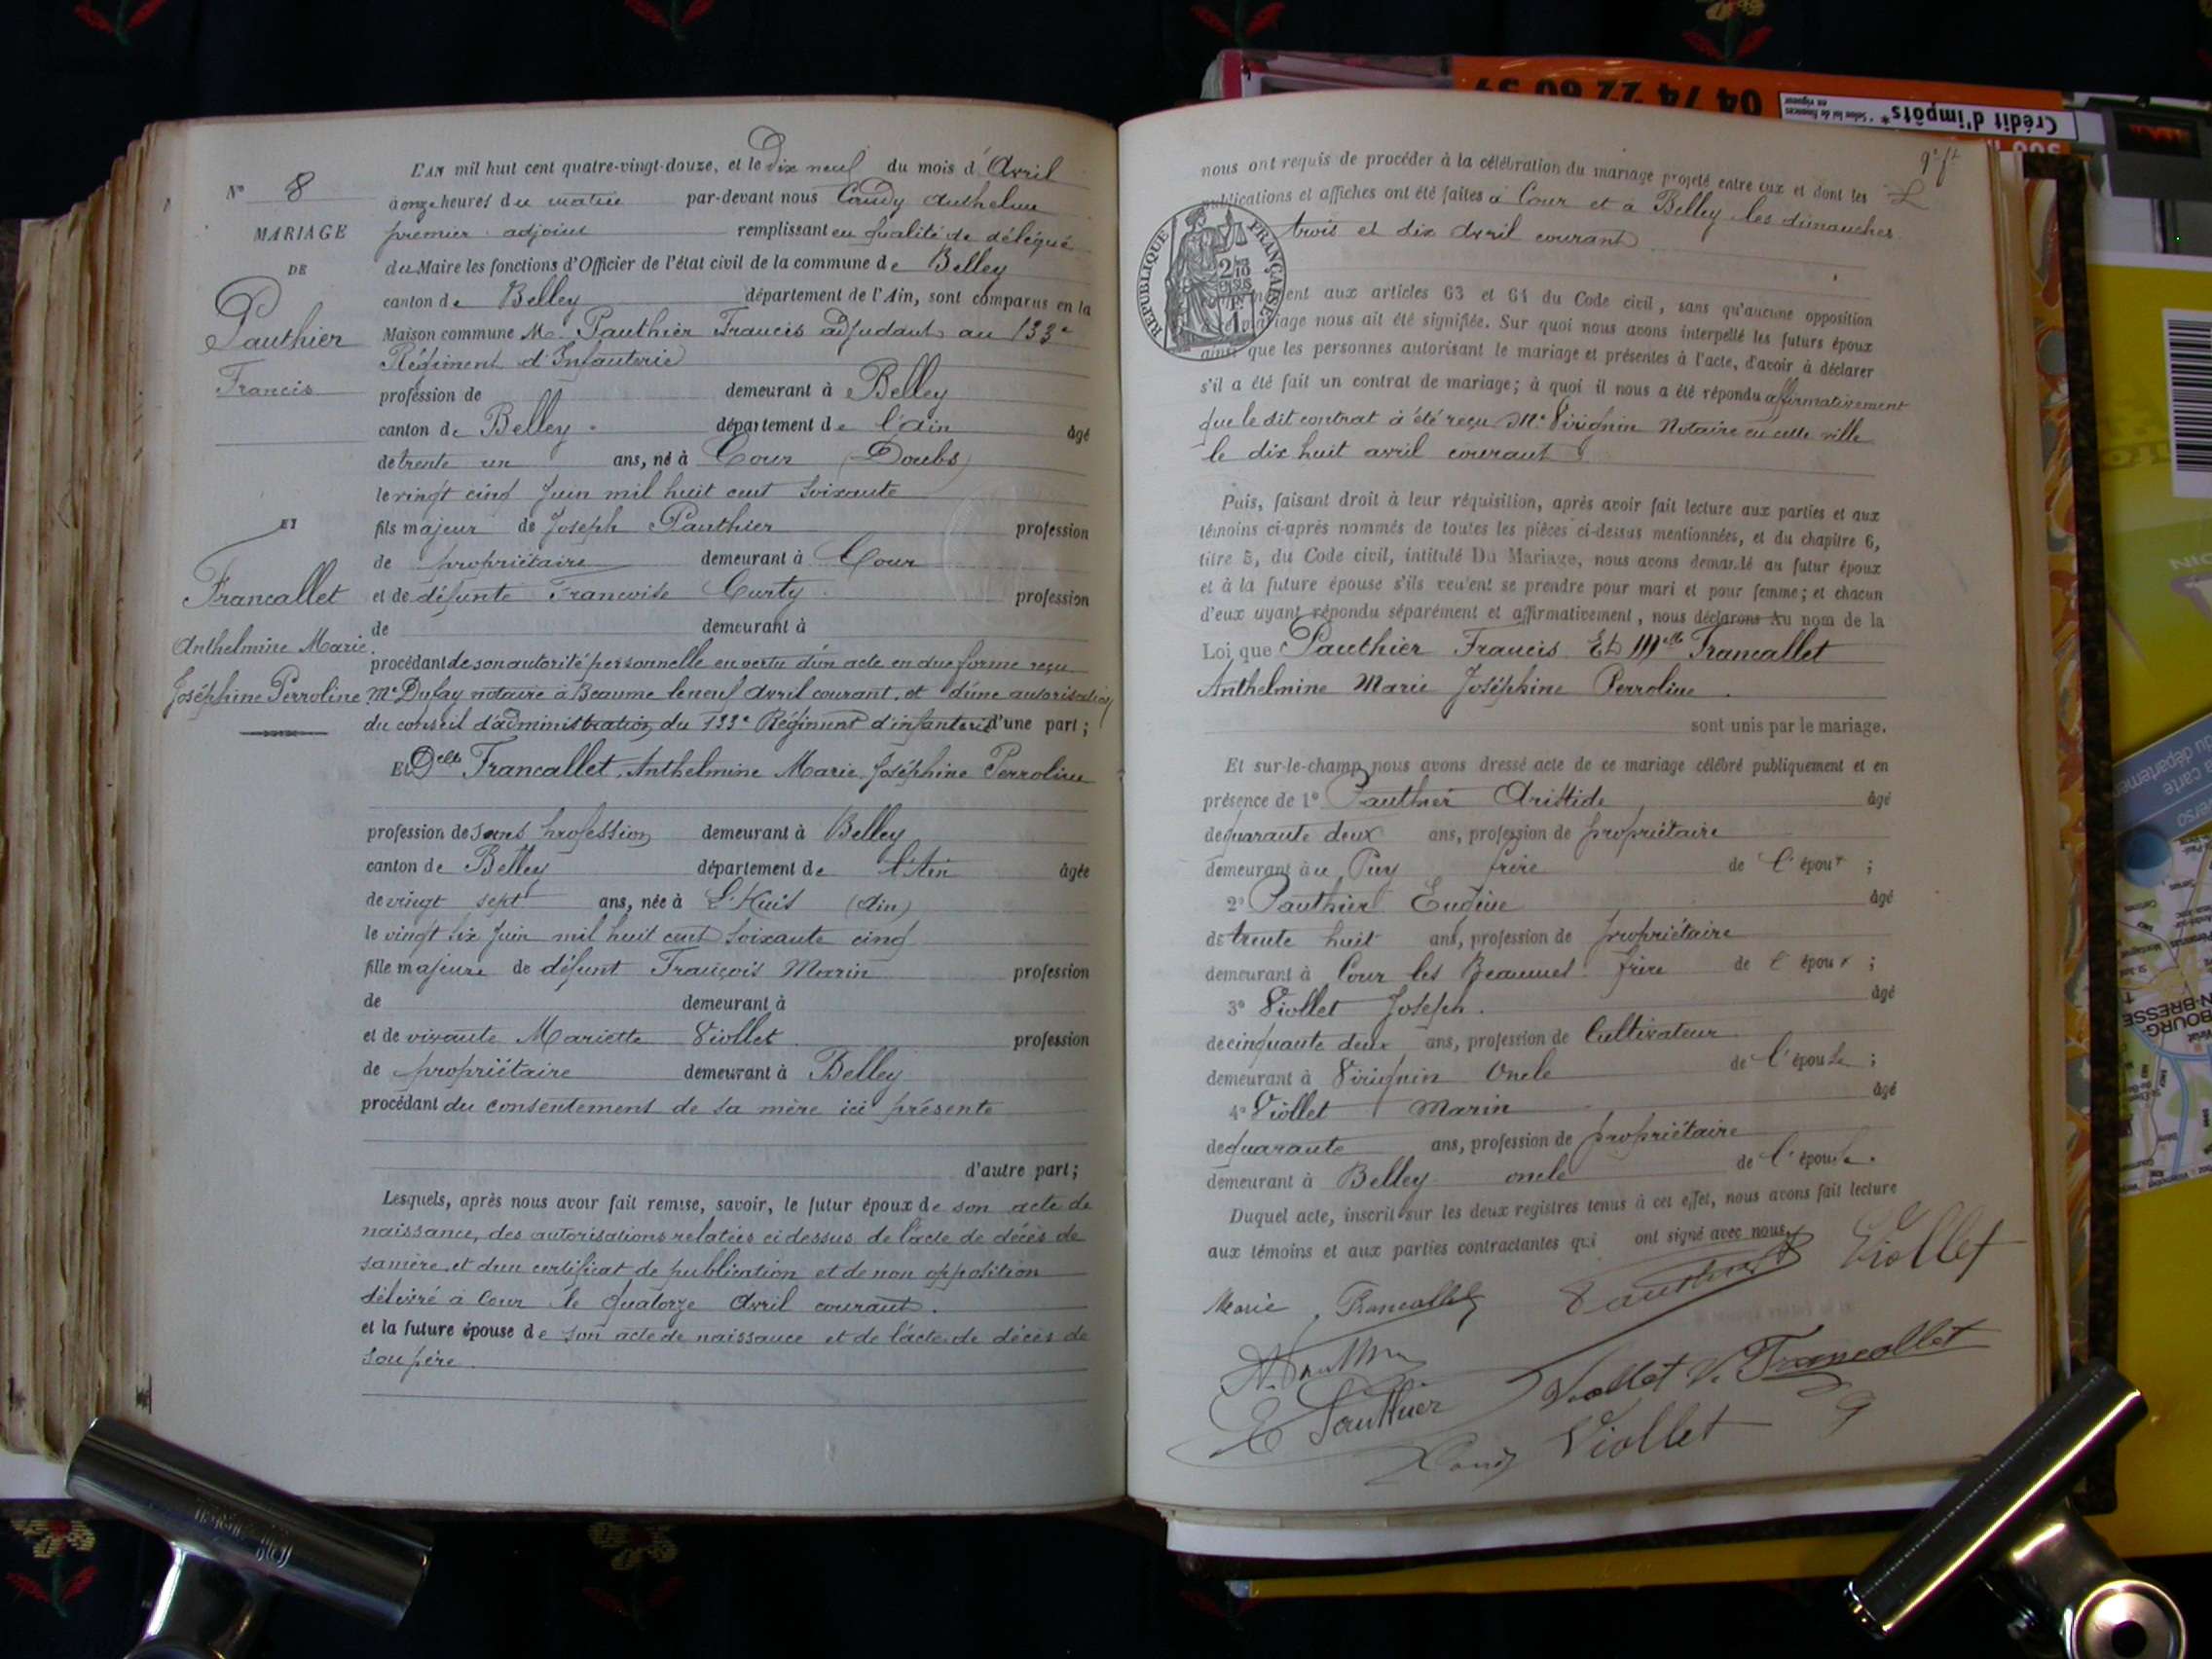 N° 8
MARIAGE
DE
Pauthier
Francis
ET
Francallet
Anthelmine Marie
Joséphine Perroline
L'AN mil huit cent quatre-vingt-douze, et le Dix neuf du mois d'Avril
à onze heures du matin par-devant nous Candy Anthelme
premier adjoint remplissant en qualité de délégué
du Maire les fonctions d'Officier de l'état civil de la commune de Belley
canton de Belley département de l'Ain, sont comparus en la
Maison commune M. Pauthier Francis adjudant au 133e
Régiment d'Infanterie
profession de demeurant à Belley
canton de Belley département de l'Ain âgé
de trente un ans, né à Cour (Doubs)
le vingt cinq Juin mil huit cent soixante
fils majeur de Joseph Pauthier profession
de propriétaire demeurant à Cour
et de défunte Francoise Curty profession
de demeurant à
procédant de son autorité personnelle en vertu d'un acte en due forme reçu
Me Dufay notaire à Beaume le neuf Avril courant et d'une autorisation
du conseil d'administration du 133e Régiment d'infanterie d'une part;
Et Delle Francallet, Anthelmine Marie Joséphine Perroline
profession de sans profession demeurant à Belley
canton de Belley département de l'Ain âgée
de vingt sept ans, née à L'Huis (Ain)
le vingt six Juin mil huit cent soixante cinq
fille majeure de défunt François Marin profession
de demeurant à
et de vivante Mariette Viollet profession
de propriétaire demeurant à Belley
procédant du consentement de sa mère ici présente
d'autre part;
Lesquels, après nous avoir fait remise, savoir, le futur époux de son acte de
naissance, des autorisations relatées ci dessus de l'acte de décès de
sa mère et d'un certificat de publication et de non opposition
délivré à Cour le quatorze Avril courant.
et la future épouse de son acte de naissance et de l'acte de décès de
son père
nous ont requis de procéder à la célébration du mariage projeté entre eux et dont les
publications et affiches ont été faites à Cour et à Belley les dimanches
trois et dix Avril courant
REPUBLIQUE FRANÇAISE
2/10 EN SUS
aux articles 63 et 64 du Code civil, sans qu'aucune opposition
mariage nous ait été signifiée. Sur quoi nous avons interpellé les futurs époux
ainsi que les personnes autorisant le mariage et présentes à l'acte, d'avoir à déclarer
s'il a été fait un contrat de mariage; à quoi il nous a été répondu affirmativement
que le dit contrat à été reçu Me Virignin Notaire en cette ville
le dix huit avril courant
Puis, faisant droit à leur réquisition, après avoir fait lecture aux parties et aux
témoins ci-après nommés de toutes les pièces ci-dessus mentionnées, et du chapitre 6,
titre 5, du Code civil, intitulé Du Mariage, nous avons demandé au futur époux
et à la future épouse s'ils veulent se prendre pour mari et pour femme; et chacun
d'eux ayant répondu séparément et affirmativement, nous déclarons Au nom de la
Loi que Pauthier Francis Et Melle Francallet
Anthelmine Marie Joséphine Perroline
sont unis par le mariage.
Et sur-le-champ nous avons dressé acte de ce mariage célébré publiquement et en
présence de 1° Pauthier Aristide âgé
de quarante deux ans, profession de propriétaire
demeurant au Puy frère de l'époux ;
2° Pauthier Eugène âgé
de trente huit ans, profession de propriétaire
demeurant à Cour les Beaumes frère de l'époux ;
3° Viollet Joseph. âgé
de cinquante deux ans, profession de Cultivateur
demeurant à Virignin Oncle de l'épouse ;
4° Viollet Marin âgé
de quarante ans, profession de propriétaire
demeurant à Belley oncle de l'épouse.
Duquel acte, inscrit sur les deux registres tenus à cet effet, nous avons fait lecture
aux témoins et aux parties contractantes qui ont signé avec nous
Marie Francallet Pauthier Viollet
A. Pauthier
E Pauthier Viollet V. Francallet
Candy Viollet
04 74 22 60 59
Crédit d'impôts*
BOURG-
EN-BRESSE